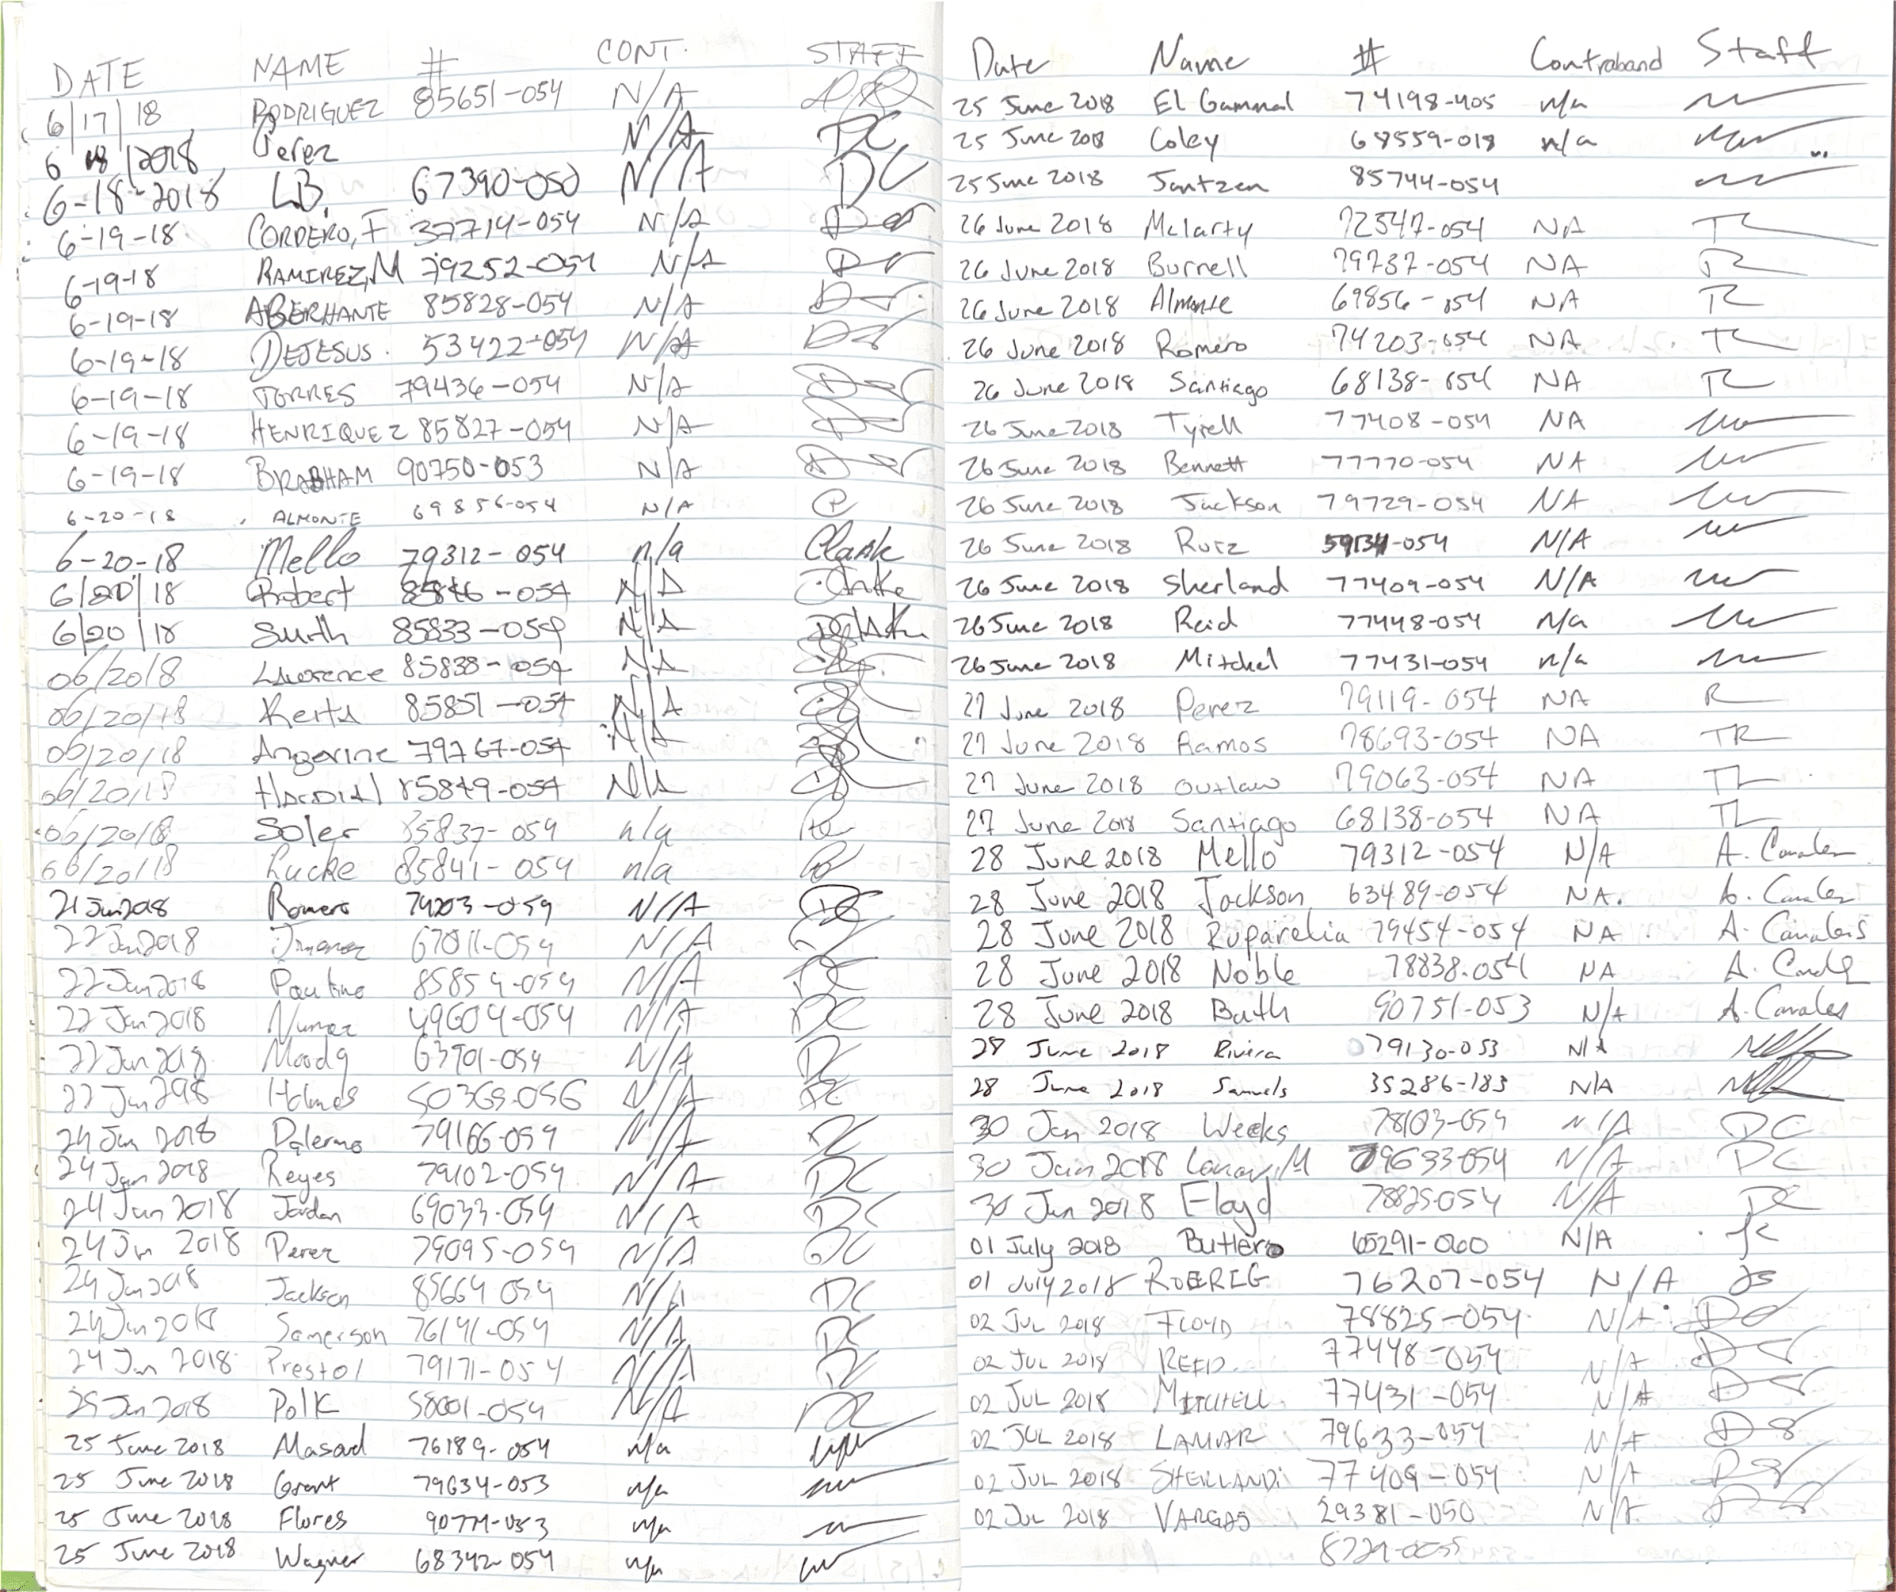 DATE NAME # CONT. STAFF
6/17/18 RODRIGUEZ 85651-054 N/A
6 18/2018 Perez N/A DC
6-18-2018 L.B. 67390-050 N/A DC
6-19-18 CORDERO, F 37714-054 N/A
6-19-18 RAMIREZ, M 79252-054 N/A
6-19-18 ABERHANTE 85828-054 N/A
6-19-18 DEJESUS. 53422-054 N/A
6-19-18 TORRES 79436-054 N/A
6-19-18 HENRIQUEZ 85827-054 N/A
6-19-18 BRABHAM 90750-053 N/A
6-20-18 ALMONTE 69856-054 N/A
6-20-18 Mello 79312-054 n/a Clarke
6/20/18 Robert 85846-054 N/A Clarke
6/20/18 Smith 85833-054 N/A
06/2018 Lawrence 85838-054 N/A
06/20/18 85851-054 N/A
06/20/18 Angerine 79767-054 N/A
06/20/18 85849-054 N/A
06/20/18 Soler 85837-054 n/a
06/20/18 Lucke 85841-054 n/a
21 Jun 2018 Romero 74203-054 N/A DC
22 Jun 2018 Jimenez 67011-054 N/A DC
22 Jun 2018 Paulino 85854-054 N/A DC
22 Jun 2018 Nunez 49604-054 N/A DC
22 Jun 2018 Moody 63701-054 N/A DC
22 Jun 298 Holmes 50369-056 N/A DC
24 Jun 2018 Palermo 79166-054 N/A DC
24 Jun 2018 Reyes 79102-054 N/A DC
24 Jun 2018 Jordan 69033-054 N/A DC
24 Jun 2018 Perez 79095-054 N/A DC
24 Jun 2018 Jackson 85664 054 N/A DC
24 Jun 2018 Samerson 76141-054 N/A DC
24 Jun 2018 Prestol 79171-054 N/A DC
25 Jun 2018 Polk 58001-054 N/A DC
25 June 2018 Masad 76189-054 n/a
25 June 2018 Grant 79634-053 n/a
25 June 2018 Flores 90771-053 n/a
25 June 2018 Wagner 68342-054 n/a
Date Name # Contraband Staff
25 June 2018 El Gammal 74198-405 n/a
25 June 2018 Coley 68559-018 n/a
25 June 2018 Jantzen 85744-054
26 June 2018 Mclarty 72547-054 NA TR
26 June 2018 Burnell 79737-054 NA TR
26 June 2018 Almonte 69856-054 NA TR
26 June 2018 Romero 74203-054 NA TR
26 June 2018 Santiago 68138-054 NA TR
26 June 2018 Tyrell 77408-054 NA
26 June 2018 Bennett 77770-054 NA
26 June 2018 Jackson 79729-054 NA
26 June 2018 Ruiz 59134-054 N/A
26 June 2018 Sherland 77409-054 N/A
26 June 2018 Reid 77448-054 n/a
26 June 2018 Mitchel 77431-054 n/a
27 June 2018 Perez 79119-054 NA R
27 June 2018 Ramos 78693-054 NA TR
27 June 2018 Outlaw 79063-054 NA TR
27 June 2018 Santiago 68138-054 NA TR
28 June 2018 Mello 79312-054 N/A A. Canales
28 June 2018 Jackson 63489-054 NA. A. Canales
28 June 2018 Ruparelia 79454-054 NA A. Canales
28 June 2018 Noble 78838-054 NA A. Canales
28 June 2018 Bath 90751-053 N/A A. Canales
28 June 2018 Rivira 79130-053 N/A
28 June 2018 Samuels 35286-183 N/A
30 Jun 2018 Weeks 78103-054 N/A DC
30 Jun 2018 Lamar, M 79633-054 N/A DC
30 Jun 2018 Floyd 78825-054 N/A DC
01 July 2018 Butler 65291-060 N/A
01 July 2018 ROERIG 76207-054 N/A JS
02 JUL 2018 FLOYD 78825-054 N/A
02 JUL 2018 REID. 77448-054 N/A
02 JUL 2018 MITCHELL 77431-054 N/A
02 JUL 2018 LAMAR 79633-054 N/A
02 JUL 2018 SHERLAND 77409-054 N/A
02 JUL 2018 VARGAS 29381-050 N/A